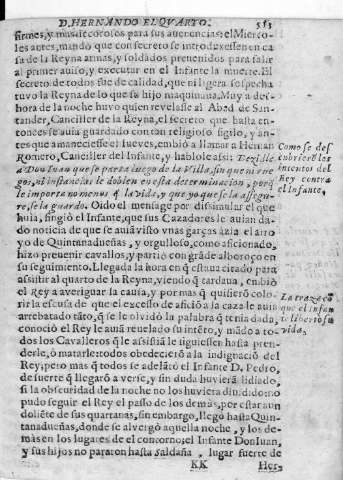 D. HERNANDO EL QVARTO. 513
firmes, y mas decorosos para sus aueriencias: el Mierco-
les antes, mandò que con secreto se introduxessen en ca
sa de la Reyna armas, y soldados preuenidos para salir
al primer auiso, y executar en el Infante la muerte. El
secreto de todos fue de calidad, que ni ligera sospecha
tuvo la Reyna de lo que su hijo maquinaua. Muy a des-
hora de la noche huvo quien reuelasse al Abad de San-
tander, Canciller de la Reyna, el secreto que hasta en-
tonces se auia guardado con religioso sigilo, y an-
tes que amaneciesse el Iueves, embiò a llamar a Hernan
Romero, Canciller del Infante, y hablole assi: Dezilde
a Don Iuan que se parta luego de la Villa, sin que ni rue-
gos, ni instancias le doblen en esta determinacion, porq̃
le importa no menos q̃ la vida, y que yo que se la assegu-
re, se la guardo. Oìdo el mensage por dissimular el que
huìa, fingiò el Infante, que sus Cazadores le auian da-
do noticia de que se auia visto vnas garças àzia el arro
yo de Quintanadueñas, y orgulloso, como aficionado,
hizo preuenir cavallos, y partiò con grãde alboroço en
su seguimiento. Llegada la hora en q̃ estaua citado para
assistir al quarto de la Reyna, viendo q̃ tardaua, embiò
el Rey a averiguar la causa, y por mas q̃ quisierõ colo-
rir la escusa de que el excesso de aficiõ a la caza le auia
arrebatado tãto, q̃ se le olvidò la palabra q̃ tenia dada,
conociò el Rey le auia reuelado su intẽto, y mãdo a to-
dos los Cavalleros q̃ le assistiã le siguiessen hasta pren-
derle, ò matarle: todos obedecierõ a la indignaciõ del
Rey, pero mas q̃ todos se adelãtò el Infante D. Pedro,
de suerte q̃ llegarõ a verse, y sin duda huvierã lidiado,
si la obscuridad de la noche no los huviera diuidido: no
pudo seguir el Rey el passo de los demàs, por estar aun
doliẽte de sus quartanas, sin embargo, llegò hasta Quin-
tanadueñas, donde se alvergò aquella noche, y los de-
màs en los lugares de el contorno; el Infante Don Iuan,
y sus hijos no pararon hasta Saldaña, lugar fuerte de
KK Her-
Como se des
cubrierõ los
intentos del
Rey contra
el Infante,
La traza cõ
que el infan
te librò su
vida,